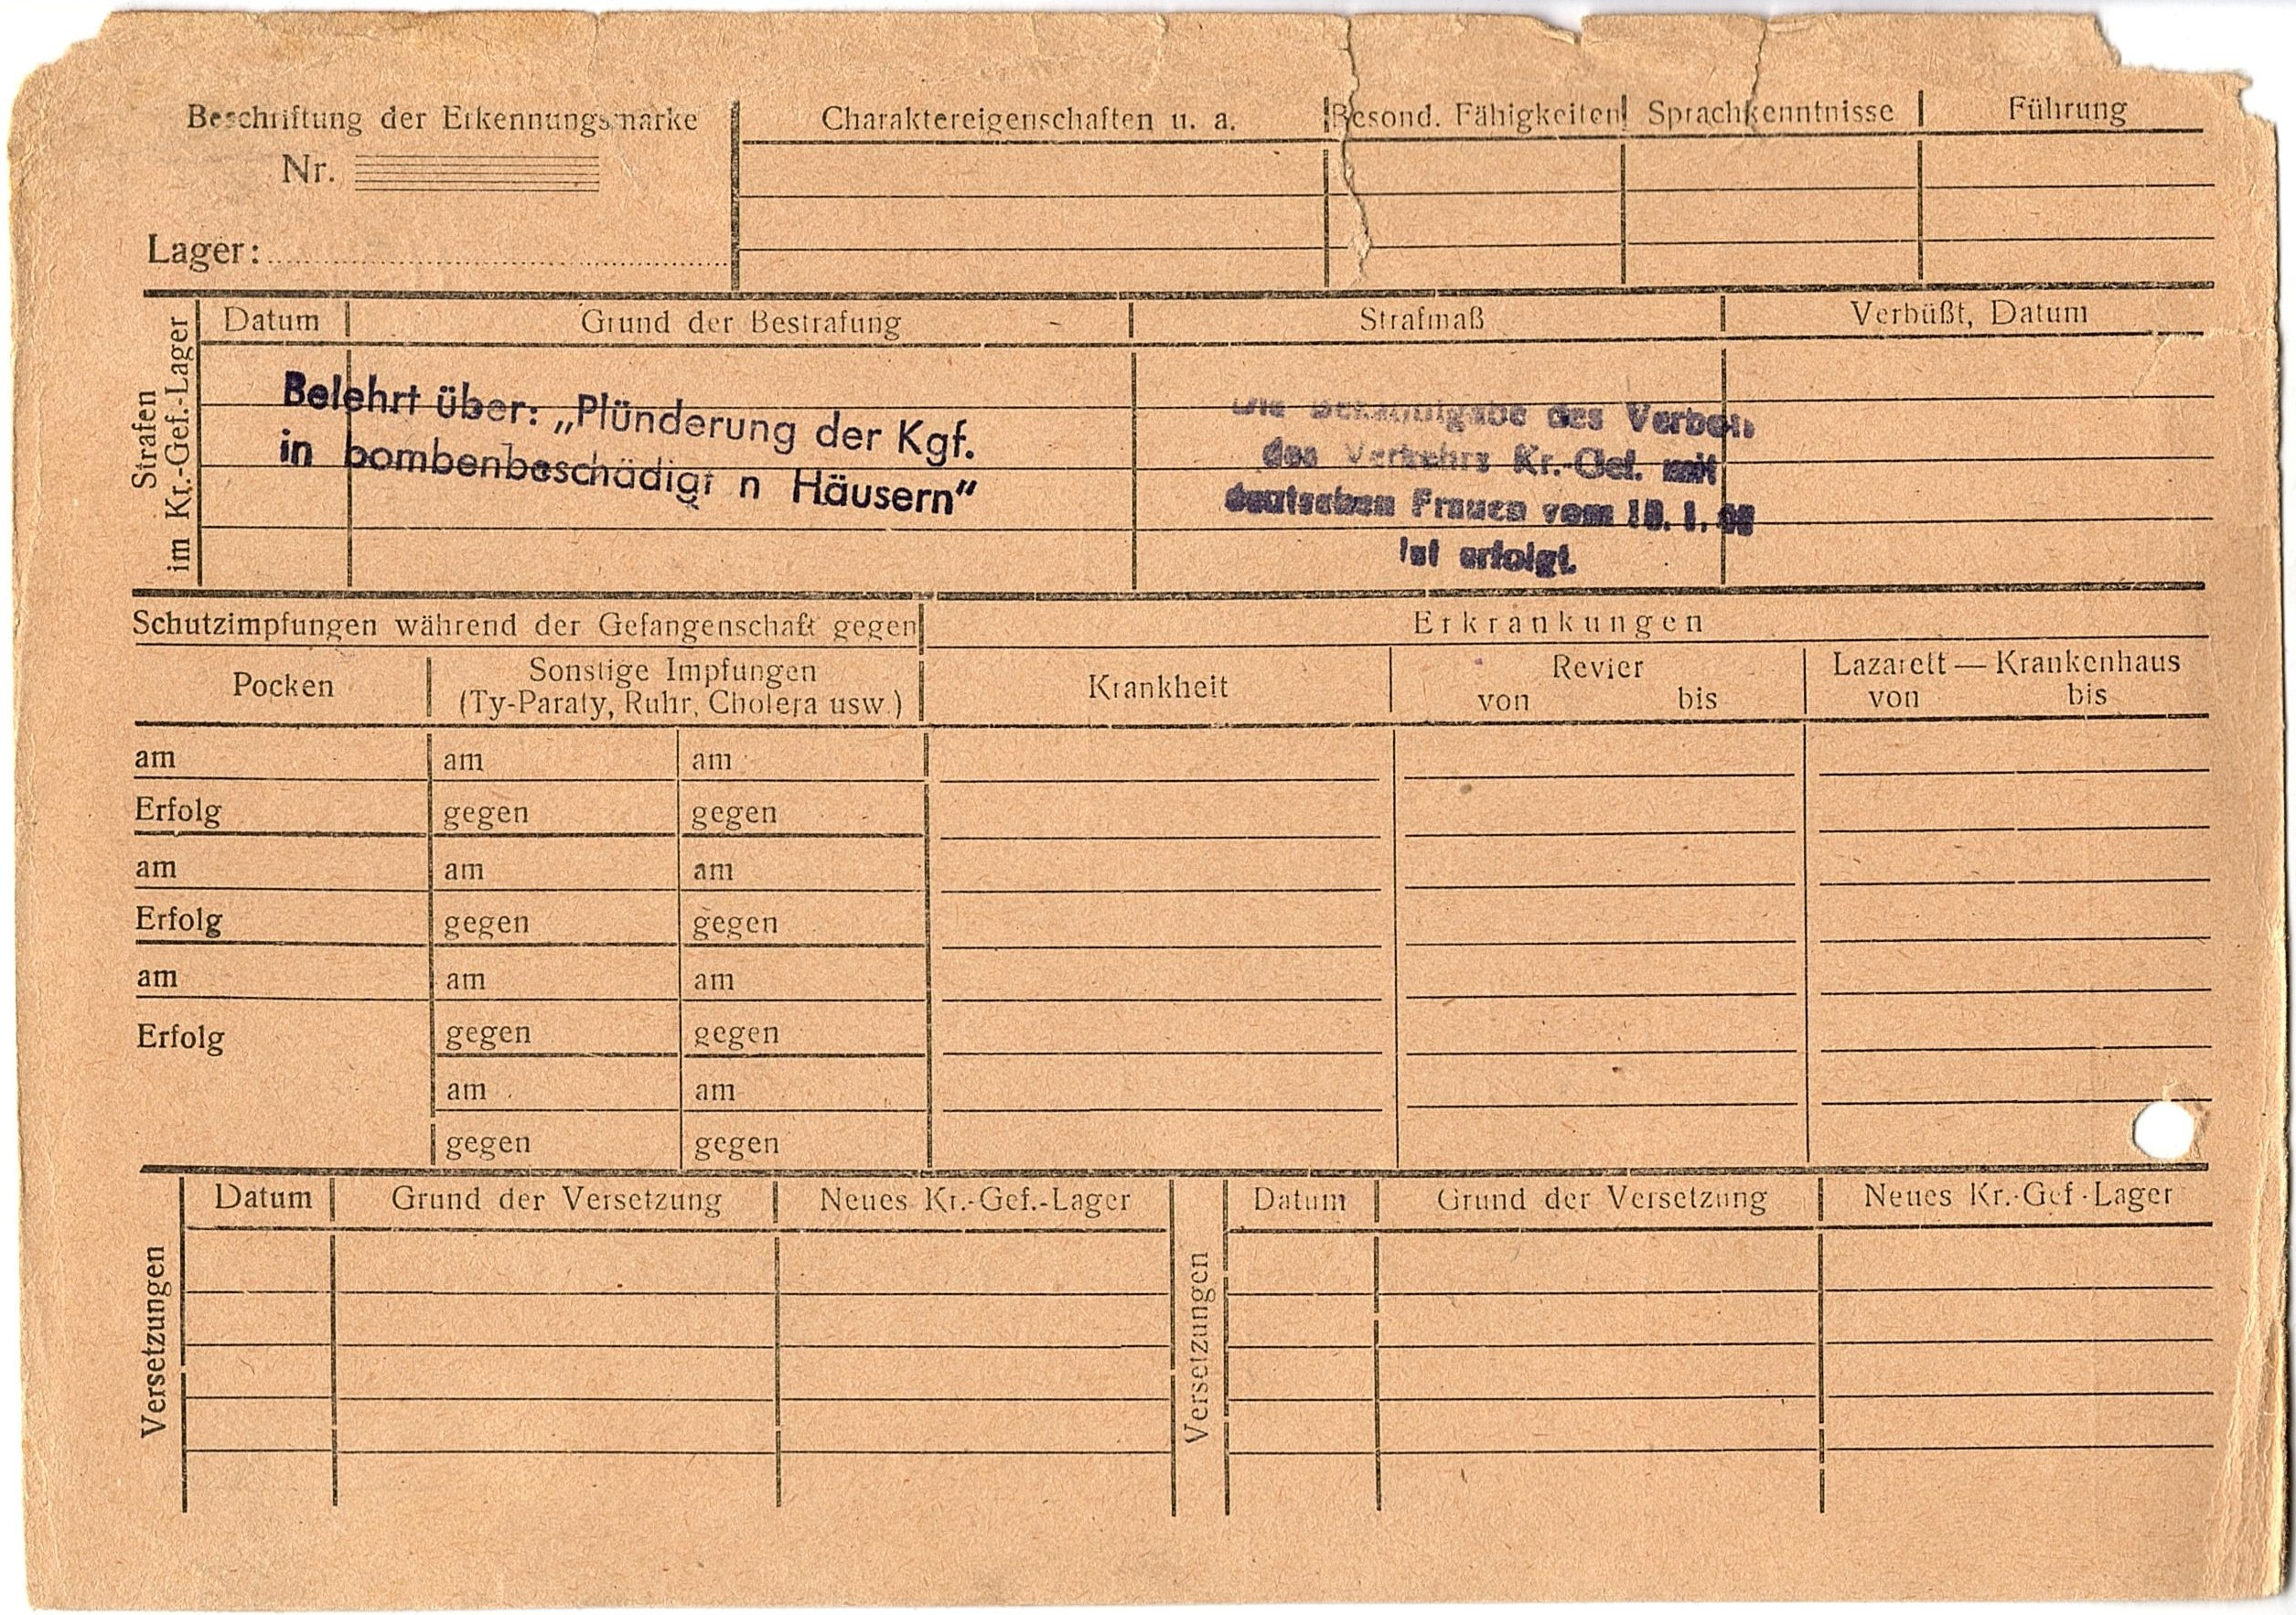 Beschriftung der Erkennungsmarke
Nr.
Lager:
Charaktereigenschaften u. a.
Besond. Fähigkeiten
Sprachkenntnisse
Führung
Strafen
im Kr.-Gef.-Lager
Datum
Grund der Bestrafung
Strafmaß
Verbüßt, Datum
Belehrt über: „Plünderung der Kgf.
in bombenbeschädigt n Häusern“
Die Bekanntgabe des Verbots
des Verkehrs Kr.-Gef. mit
deutschen Frauen vom
ist erfolgt.
Schutzimpfungen während der Gefangenschaft gegen
Erkrankungen
Pocken
Sonstige Impfungen
(Ty-Paraty, Ruhr, Cholera usw.)
Krankheit
Revier
von bis
Lazarett — Krankenhaus
von bis
am am am
Erfolg gegen gegen
am am am
Erfolg gegen gegen
am am am
Erfolg gegen gegen
am am
gegen gegen
Versetzungen
Datum
Grund der Versetzung
Neues Kr.-Gef.-Lager
Versetzungen
Datum
Grund der Versetzung
Neues Kr.-Gef.-Lager